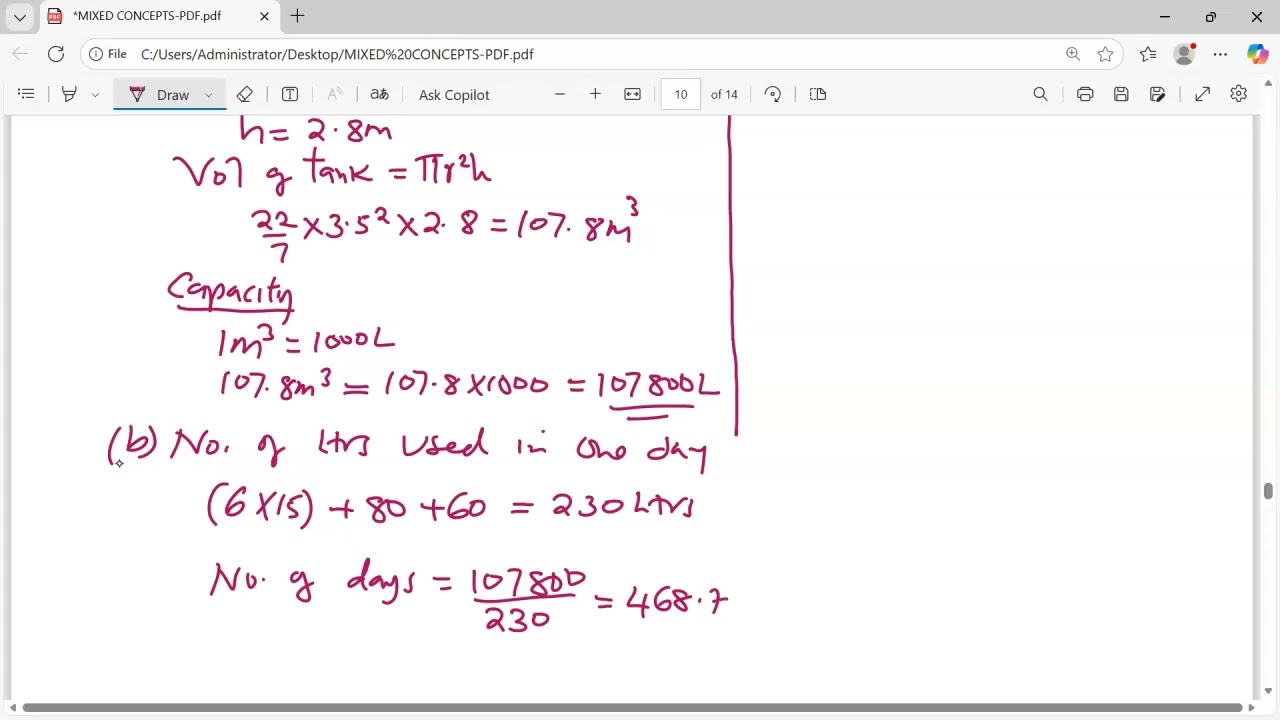 *MIXED CONCEPTS-PDF.pdf
File C:/Users/Administrator/Desktop/MIXED%20CONCEPTS-PDF.pdf
Draw Ask Copilot 10 of 14
h = 2.8m
Vol of tank = πr²h
22/7 × 3.5² × 2.8 = 107.8m³
Capacity
1m³ = 1000L
107.8m³ = 107.8×1000 = 107800L
(b) No. of Ltrs used in one day
(6×15) + 80 + 60 = 230 Ltrs
No. of days = 107800/230 = 468.7